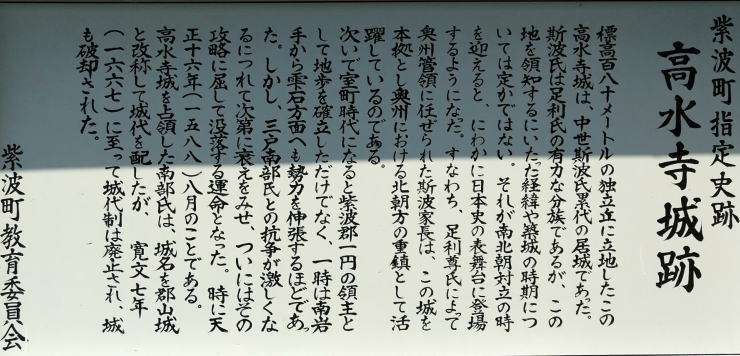 紫波町指定史跡
高水寺城跡
標高百八十メートルの独立丘に立地したこの
高水寺城は、中世斯波氏累代の居城であった。
斯波氏は足利氏の有力な分族であるが、この
地を領知するにいたった経緯や築城の時期につ
いては定かではない。それが南北朝対立の時
を迎えると、にわかに日本史の表舞台に登場
するようになった。すなわち、足利尊氏によって
奥州管領に任ぜられた斯波家長は、この城を
本拠とし奥州における北朝方の重鎮として活
躍しているのである。
次いで室町時代になると紫波郡一円の領主と
して地歩を確立しただけでなく、一時は南岩
手から雫石方面へも勢力を伸張するほどであっ
た。しかし、三戸南部氏との抗争が激しくな
るにつれて次第に衰えをみせ、ついにはその
攻略に屈して没落する運命となった。時に天
正十六年(一五八八)八月のことである。
高水寺城を占領した南部氏は、城名を郡山城
と改称して城代を配したが、寛文七年
(一六六七)に至って城代制は廃止され、城
も破却された。
紫波町教育委員会